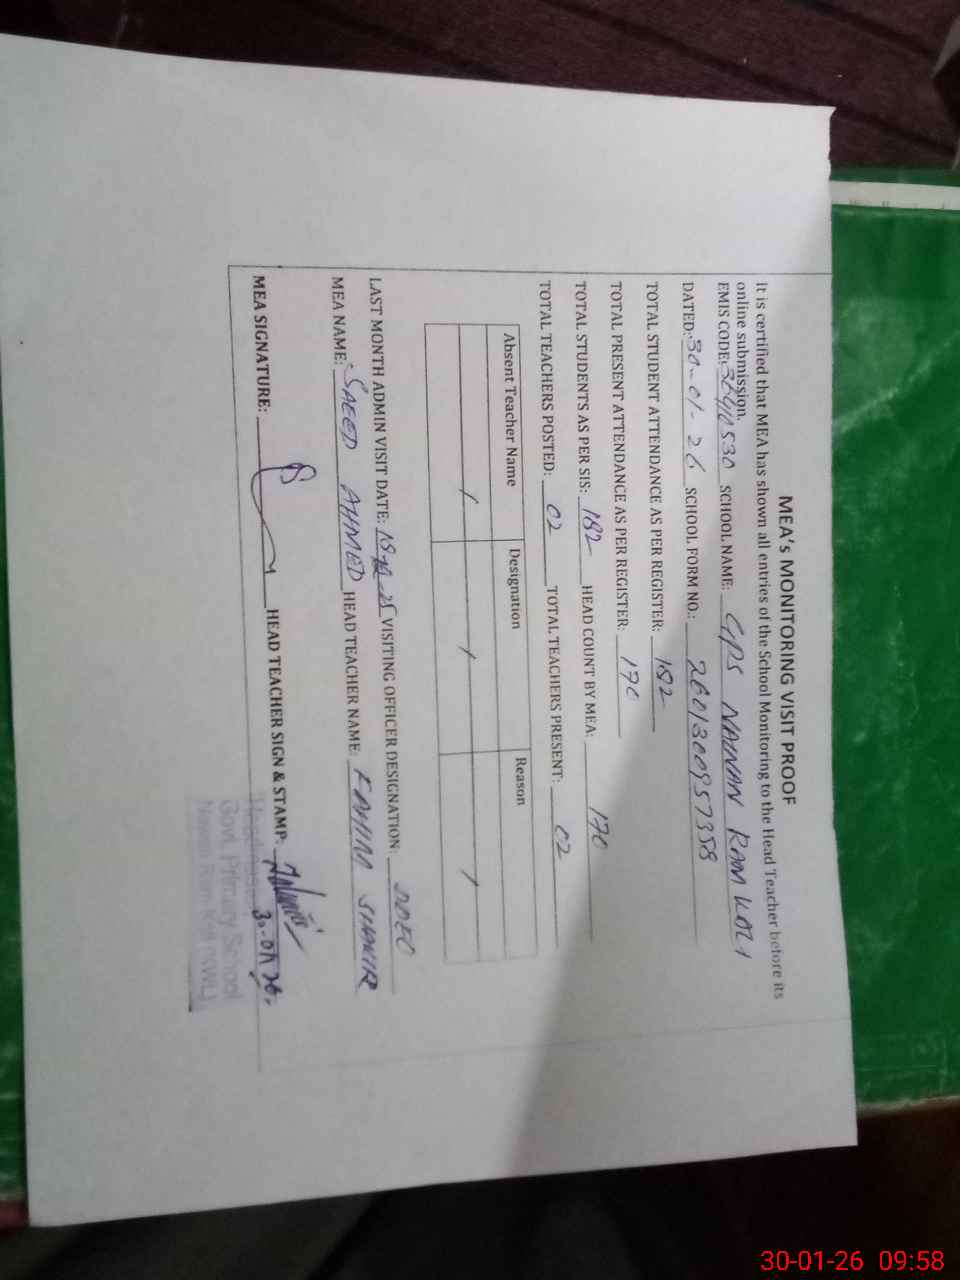 MEA's MONITORING VISIT PROOF
It is certified that MEA has shown all entries of the School Monitoring to the Head Teacher before its
online submission.
EMIS CODE: SCHOOL NAME: GPS NAWAN RAM KALI
DATED: 30-01-26 SCHOOL FORM NO.: 2601300957358
TOTAL STUDENT ATTENDANCE AS PER REGISTER: 182
TOTAL PRESENT ATTENDANCE AS PER REGISTER: 170
TOTAL STUDENTS AS PER SIS: 182 HEAD COUNT BY MEA: 170
TOTAL TEACHERS POSTED: 02 TOTAL TEACHERS PRESENT: 02
Absent Teacher Name Designation Reason
LAST MONTH ADMIN VISIT DATE: VISITING OFFICER DESIGNATION: DDEO
MEA NAME: SAEED AHMED HEAD TEACHER NAME: FAHIM
MEA SIGNATURE: HEAD TEACHER SIGN & STAMP:
30-01-26
Govt. Primary School
Nawan Ram (KWL)
30-01-26 09:58